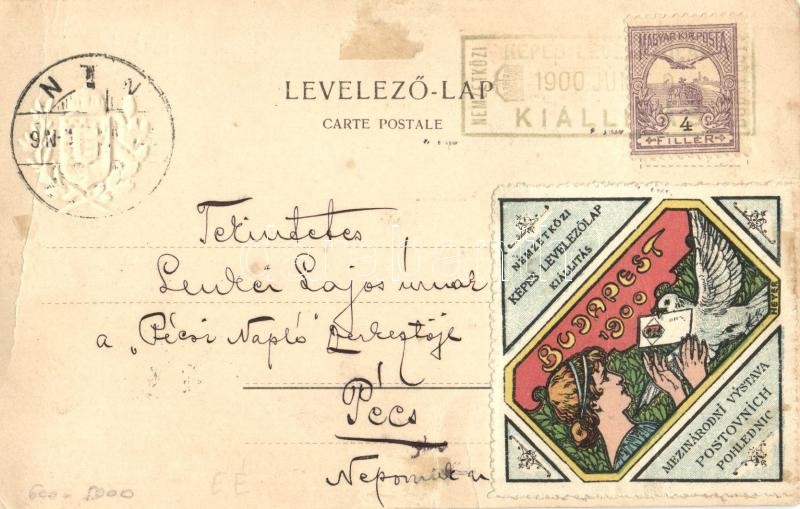 LEVELEZŐ-LAP
CARTE POSTALE
NEMZETKÖZI
KÉPES LEVE
1900 JUN
KIÁLL
MAGYAR KIR. POSTA
4
FILLÉR
Tekintetes
Lenkei Lajos úrnak
a „Pécsi Napló" szerkesztője
Pécs
Nepomuk u
NEMZETKÖZI
KÉPES LEVELEZŐLAP
KIÁLLITÁS
BUDAPEST
1900
MEZINÁRODNÍ VÝSTAVA
POSTOVNÍCH
POHLEDNIC
600 - 5000
EÉ